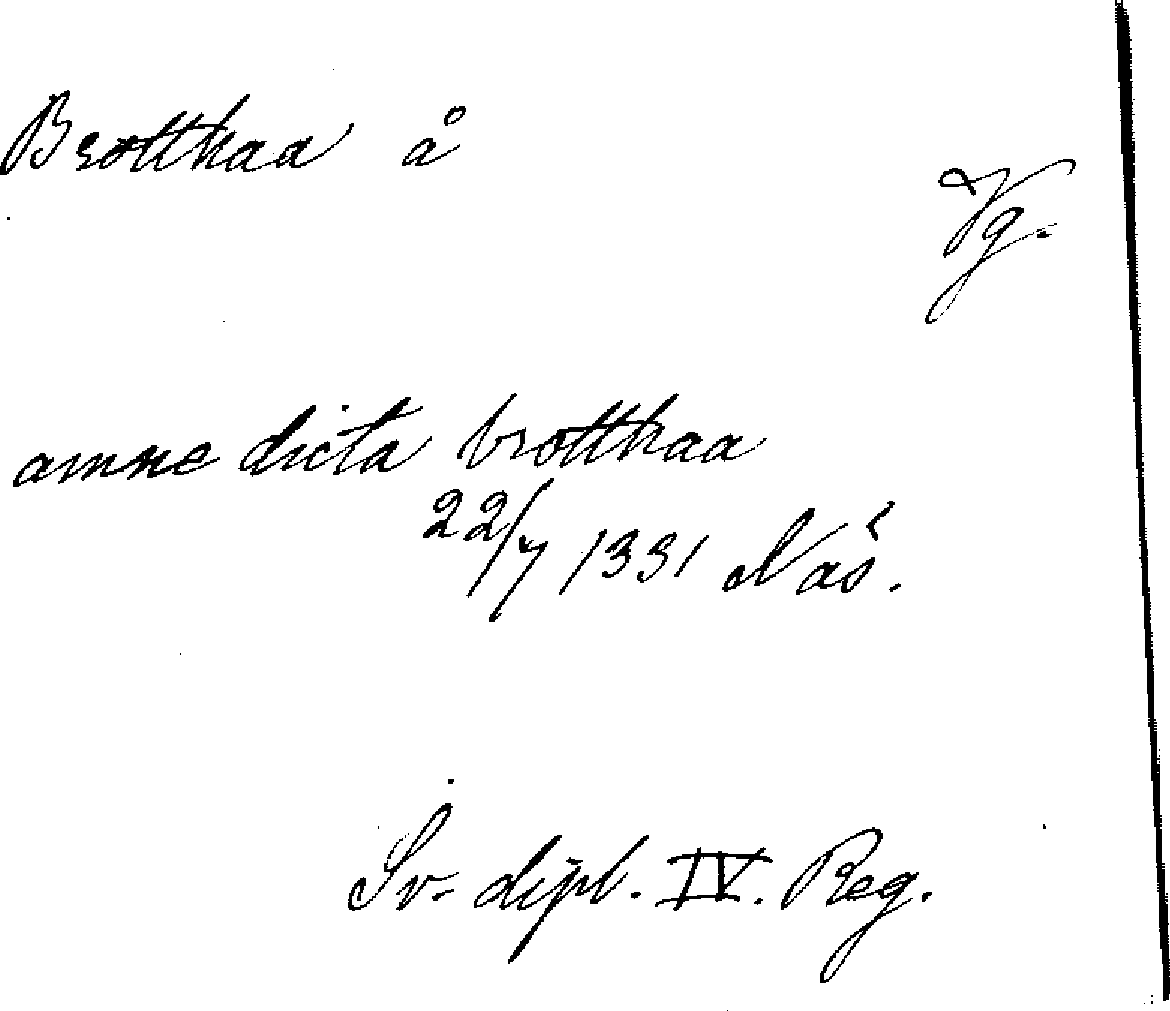 Brottkaa å
Vg.
amne dicta brottkaa
22/7 1331 Näs.
Sv. dipl. IV. Reg.